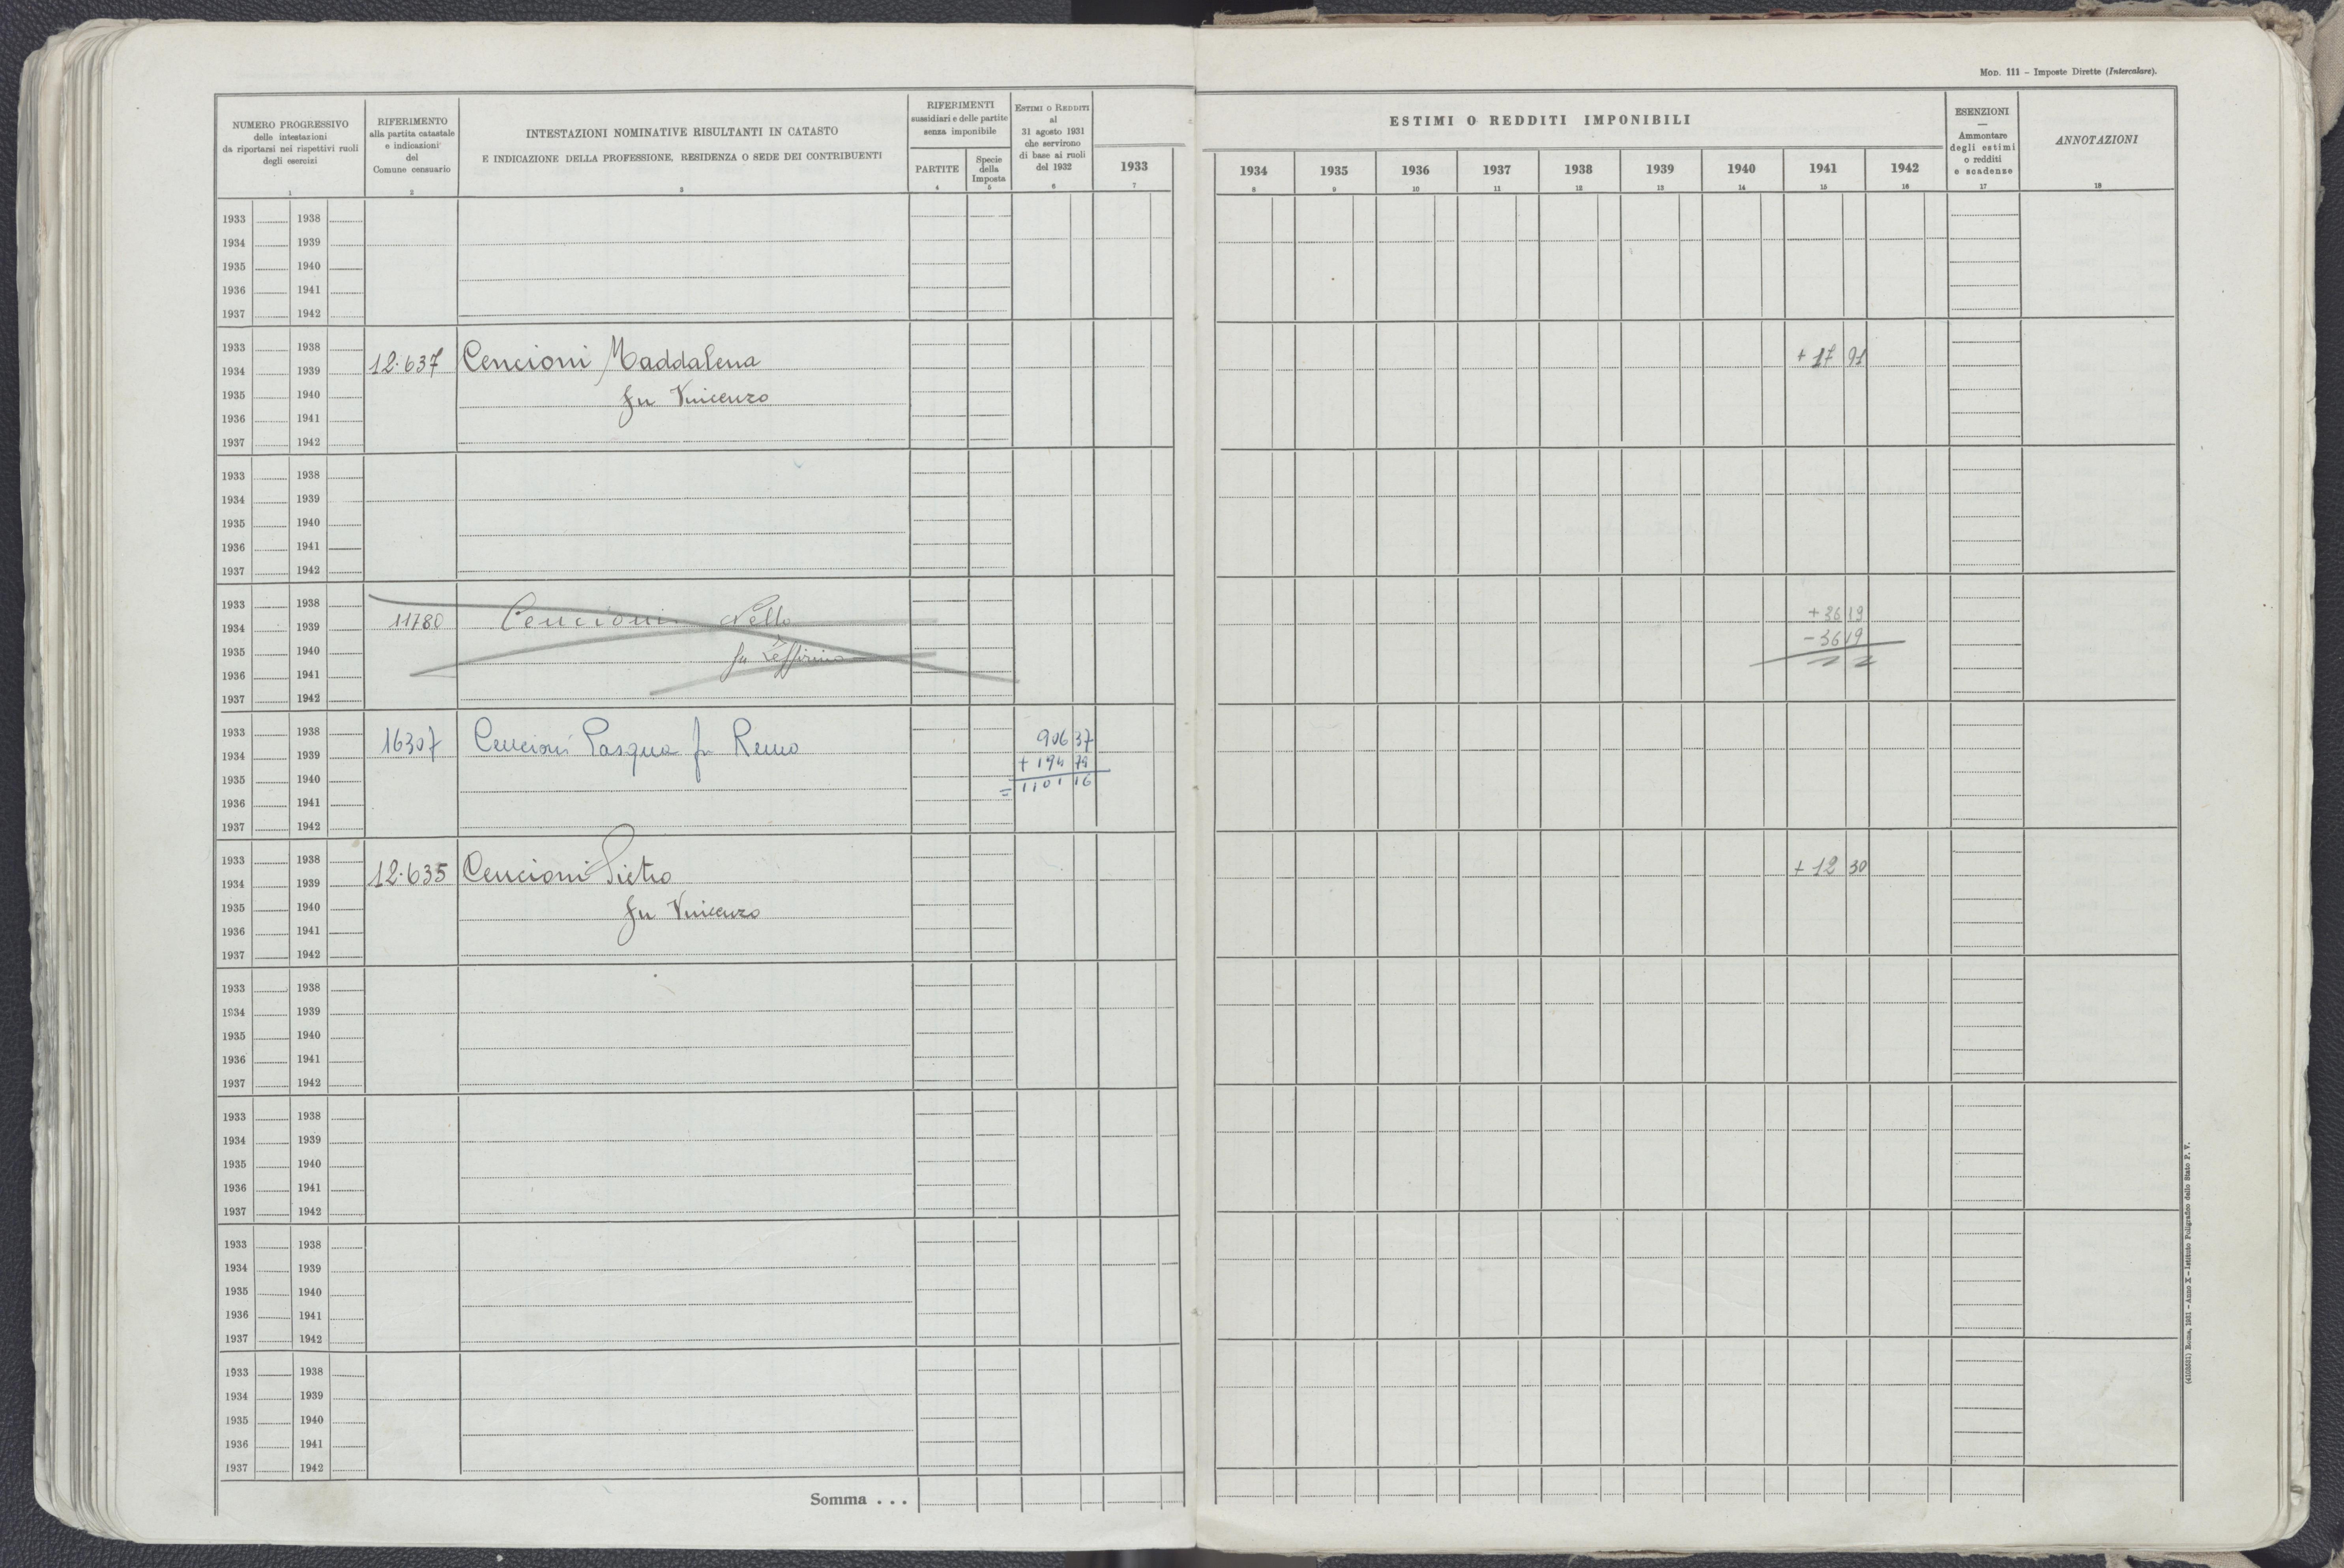 Mod. 111 – Imposte Dirette (Intercalare).
NUMERO PROGRESSIVO
delle intestazioni
da riportarsi nei rispettivi ruoli
degli esercizi
1
RIFERIMENTO
alla partita catastale
e indicazioni
del
Comune censuario
2
INTESTAZIONI NOMINATIVE RISULTANTI IN CATASTO
E INDICAZIONE DELLA PROFESSIONE, RESIDENZA O SEDE DEI CONTRIBUENTI
3
RIFERIMENTI
sussidiari e delle partite
senza imponibile
PARTITE
4
Specie
della
Imposta
5
Estimi o Redditi
al
31 agosto 1931
che servirono
di base ai ruoli
del 1932
6
1933
7
ESTIMI O REDDITI IMPONIBILI
1934 1935 1936 1937 1938 1939 1940 1941 1942
8 9 10 11 12 13 14 15 16
ESENZIONI
—
Ammontare
degli estimi
o redditi
e scadenze
17
ANNOTAZIONI
18
1933 1938
1934 1939
1935 1940
1936 1941
1937 1942
1933 1938
1934 1939 12.637 Cencioni Maddalena + 17 91
1935 1940 fu Vincenzo
1936 1941
1937 1942
1933 1938
1934 1939
1935 1940
1936 1941
1937 1942
1933 1938
1934 1939 11780 Cencioni Nello + 36 19
1935 1940 fu Zeffirino – 36 19
1936 1941
1937 1942
1933 1938
1934 1939 16307 Cencioni Pasqua fu Remo 906 37
1935 1940 + 194 79
1936 1941 = 1101 16
1937 1942
1933 1938
1934 1939 12.635 Cencioni Pietro + 12 30
1935 1940 fu Vincenzo
1936 1941
1937 1942
1933 1938
1934 1939
1935 1940
1936 1941
1937 1942
1933 1938
1934 1939
1935 1940
1936 1941
1937 1942
1933 1938
1934 1939
1935 1940
1936 1941
1937 1942
1933 1938
1934 1939
1935 1940
1936 1941
1937 1942
Somma . . .
Roma, 1931 – Anno X – Istituto Poligrafico dello Stato P. V.